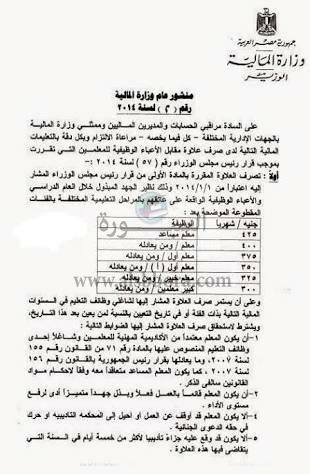 جمهورية مصر العربية
وزارة المالية
الوزير
منشور عام وزارة المالية
رقم (٢) لسنة ٢٠١٤
على السادة مراقبي الحسابات والمديرين الماليين وممثلي وزارة المالية
بالجهات الإدارية المختلفة – كل فيما يخصه – مراعاة الالتزام وبكل دقة بالتعليمات
المالية التالية لدى صرف علاوة مقابل الأعباء الوظيفية للمعلمين التي تقررت
بموجب قرار رئيس مجلس الوزراء رقم (٥٧) لسنة ٢٠١٤ :-
أولاً: تصرف العلاوة المقررة بالمادة الأولى من قرار رئيس مجلس الوزراء المشار
إليه اعتباراً من ٢٠١٤/١/١ وذلك نظير الجهد المبذول خلال العام الدراسي
والأعباء الوظيفية الواقعة على عاتقهم بالمراحل التعليمية المختلفة بالفئات
المقطوعة الموضحة بعد :
جنيه / شهرياً الوظيفة
٤٢٥ معلم مساعد
٤٠٠ معلم / ومن يعادله
٣٧٥ معلم أول / ومن يعادله
٣٥٠ معلم أول (أ) / ومن يعادله
٣٢٥ معلم خبير / ومن يعادله
٣٠٠ كبير معلمين / ومن يعادله
وعلى أن يستمر صرف العلاوة المشار إليها لشاغلي وظائف التعليم في السنوات
المالية التالية بذات الفئة أو في تاريخ التعيين بالنسبة لمن يعين بعد هذا التاريخ،
ويشترط لاستحقاق صرف العلاوة المشار إليها الضوابط التالية :
١-أن يكون المعلم معتمداً من الأكاديمية المهنية للمعلمين وشاغلاً لإحدى
وظائف التعليم المنصوص عليها بالمادة رقم ٧١ من القانون رقم ١٥٥
لسنة ٢٠٠٧، وما يعادلها بقرار رئيس الجمهورية بالقانون رقم ١٥٦
لسنة ٢٠٠٧ ، كما يكون المعلم المساعد متعاقداً معه وفقاً لأحكام مواد
القانونين سالفي الذكر .
٢-أن يكون المعلم قائماً بالعمل فعلاً ويبذل جهداً متميزاً أدى لرفع
مستوى الأداء .
٤-ألا يكون قد أوقف عن العمل أو أحيل إلى المحكمة التأديبية أو حرك
في حقه الدعوى الجنائية .
٥-ألا يكون قد وقع عليه جزاء تأديبياً لأكثر من خمسة أيام في السنة التي
يتقاضى فيها هذه العلاوة .